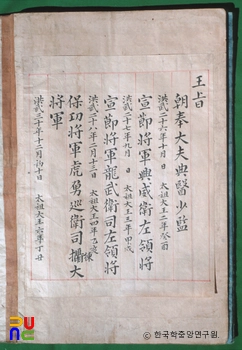 王旨
朝奉大夫典醫少監
洪武二十六年十月 日 太祖大王二年癸酉
宣節將軍興威衛左領將
洪武二十七年九月 日 太祖大王三年甲戌
宣節將軍龍武衛司左領將
洪武二十八年二月十三日 太祖大王四年乙亥
保功將軍虎勇巡衛司攝大
將軍
洪武三十年十二月初十日 太祖大王六年丁丑
한국학중앙연구원